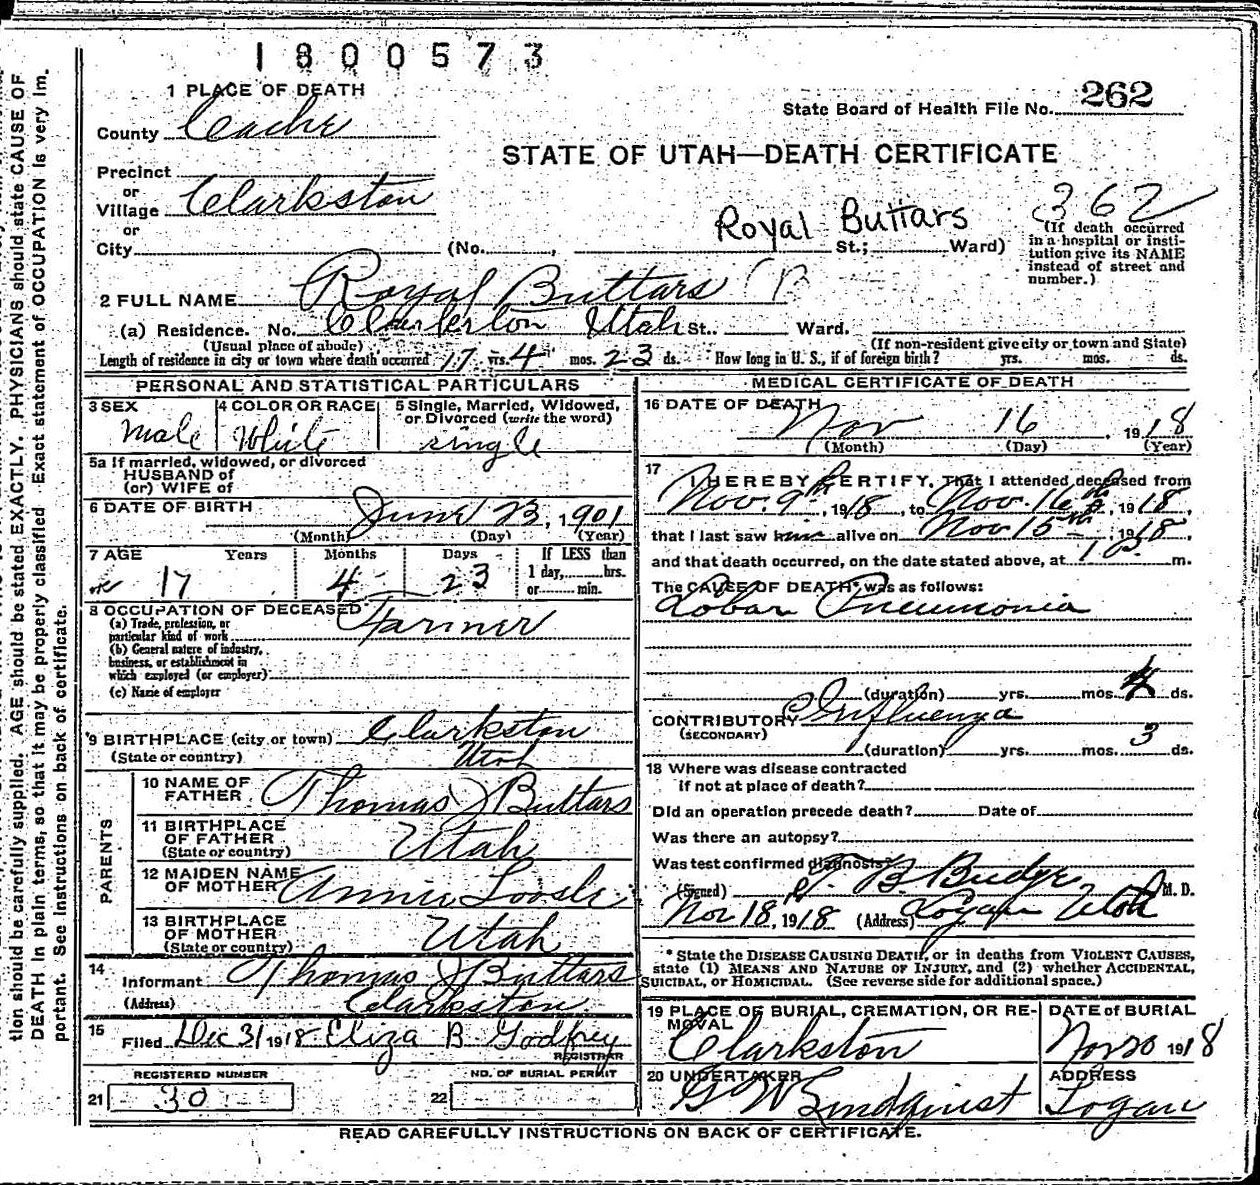 1800573
1 PLACE OF DEATH
State Board of Health File No. 262
County Cache
STATE OF UTAH—DEATH CERTIFICATE
Precinct
or
Village Clarkston
362
or
Royal Buttars
City (No. , St.; Ward)
(If death occurred
in a hospital or insti-
tution give its NAME
instead of street and
number.)
2 FULL NAME Royal Buttars
(a) Residence. No. Clarkston Utah St. Ward.
(Usual place of abode) (If non-resident give city or town and State)
Length of residence in city or town where death occurred 17 yrs. 4 mos. 23 ds. How long in U. S., if of foreign birth? yrs. mos. ds.
PERSONAL AND STATISTICAL PARTICULARS
3 SEX
Male
4 COLOR OR RACE
White
5 Single, Married, Widowed,
or Divorced (write the word)
Single
5a If married, widowed, or divorced
HUSBAND of
(or) WIFE of
6 DATE OF BIRTH June 23, 1901
(Month) (Day) (Year)
7 AGE Years Months Days If LESS than
1 day, hrs.
17 4 23 or min.
8 OCCUPATION OF DECEASED Farmer
(a) Trade, profession, or
particular kind of work
(b) General nature of industry,
business, or establishment in
which employed (or employer)
(c) Name of employer
9 BIRTHPLACE (city or town) Clarkston
(State or country) Utah
PARENTS
10 NAME OF
FATHER Thomas J Buttars
11 BIRTHPLACE
OF FATHER Utah
(State or country)
12 MAIDEN NAME
OF MOTHER Annie Loosle
13 BIRTHPLACE
OF MOTHER Utah
(State or country)
14
Informant Thomas J Buttars
(Address) Clarkston
15
Filed Dec 31 1918 Eliza B Godfrey
REGISTRAR
REGISTERED NUMBER NO. OF BURIAL PERMIT
21 30 22
MEDICAL CERTIFICATE OF DEATH
16 DATE OF DEATH
Nov 16, 1918
(Month) (Day) (Year)
17 I HEREBY CERTIFY, That I attended deceased from
Nov. 9th, 1918, to Nov. 16th, 1918,
that I last saw him alive on Nov 15th, 1918,
and that death occurred, on the date stated above, at m.
The CAUSE OF DEATH* was as follows:
Lobar Pneumonia
(duration) yrs. mos. 4 ds.
CONTRIBUTORY Influenza
(SECONDARY)
(duration) yrs. mos. 3 ds.
18 Where was disease contracted
if not at place of death?
Did an operation precede death? Date of
Was there an autopsy?
What test confirmed diagnosis?
(Signed) B. Budge M. D.
Nov 18, 1918 (Address) Logan Utah
* State the DISEASE CAUSING DEATH, or in deaths from VIOLENT CAUSES,
state (1) MEANS AND NATURE OF INJURY, and (2) whether ACCIDENTAL,
SUICIDAL, or HOMICIDAL. (See reverse side for additional space.)
19 PLACE OF BURIAL, CREMATION, OR RE-
MOVAL
Clarkston
DATE of BURIAL
Nov 20 1918
20 UNDERTAKER
G W Lindquist
ADDRESS
Logan
READ CAREFULLY INSTRUCTIONS ON BACK OF CERTIFICATE.
tion should be carefully supplied. AGE should be stated EXACTLY. PHYSICIANS should state CAUSE OF
DEATH in plain terms, so that it may be properly classified. Exact statement of OCCUPATION is very im-
portant. See instructions on back of certificate.